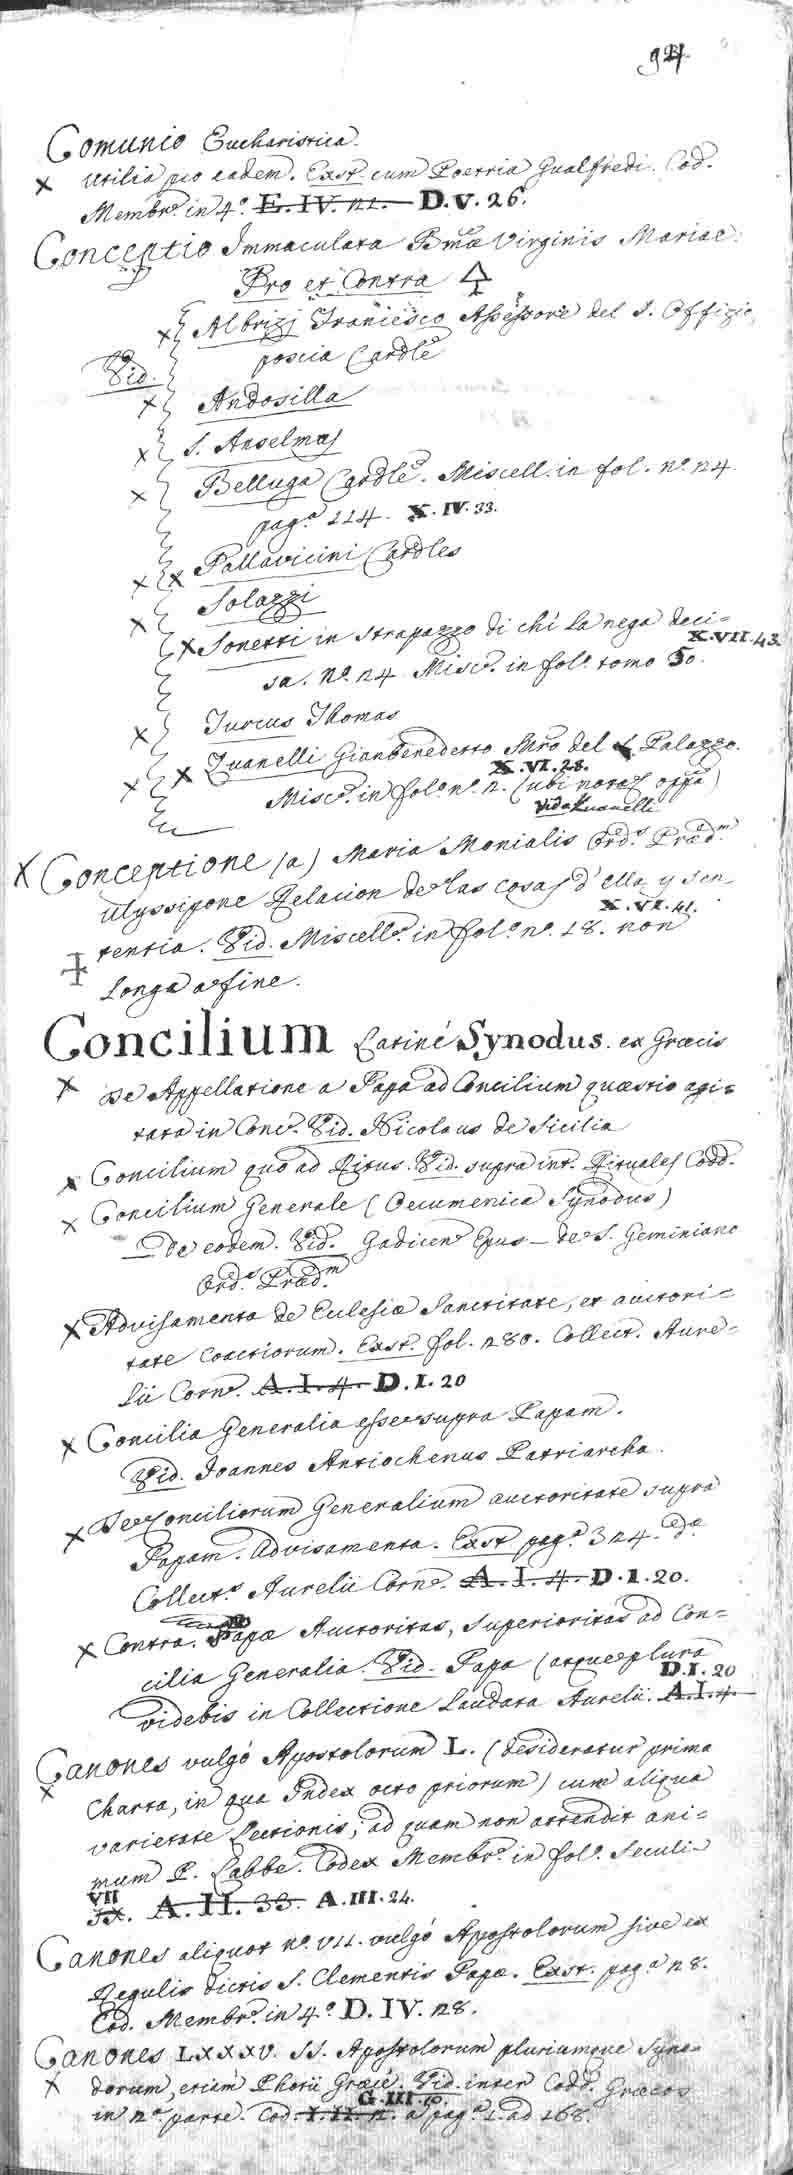 94
Comunio Eucharistica.
utilia pro eadem. Exst. cum Poetria Gualfredi. Cod.
Membr. in 4.º E. IV. 21. D.V. 26.
Conceptio Immaculata Bmæ Virginis Mariae:
Pro et Contra
Albrizj Francesco Assessore del S. Offizio,
poscia Cardle
Vid.
Andosilla
S. Anselmus
Belluga Cardle. Miscell. in fol. nº. 24.
pag.ª 114. X. IV. 33.
Pallavicini Cardles
Solazzi
Sonetti in strapazzo di chi la nega deci=
X.VII.43.
sa. nº. 24 Misc. in folº. tomo 50.
Turcus Thomas
Zuanelli Gianbenedetto Mro del S. Palazzo.
X.VI.28.
Misc. in folº. nº. 2. (ubi
Vid. Zuanelli
Conceptione (a) Maria Monialis Ord.s Præd.m
Ulyssipone Relacion de las cosas d'ella y sen
X.VI.41.
tentia. Vid. Miscell. in folº. nº. 18. non
longe a fine.
Concilium Latinè Synodus. ex Græcis
De Appellatione a Papa ad Concilium quæstio agi=
tata in Conc. Vid. Nicolaus de Sicilia
Concilium quo ad Ritus. Vid. supra int. Rituales Codd.
Concilium Generale (Oecumenica Synodus)
_ De eodem. Vid. Gadicen Epus _ de S. Geminiano
Ord.s Præd.m
Advisamenta de Eclesiæ Sanctitate, et auctori=
tate coactiorum. Exst. fol. 280. Collect. Aure=
lii Corn. A. I. 4. D.I.20
Concilia Generalia esse supra Papam.
Vid. Joannes Antiochenus Patriarcha.
De Conciliorum Generalium auctoritate supra
Papam. Advisamenta. Exst pag.ª 324.
Collect.s Aurelii Corn. A. I. 4. D.I.20.
Contra. Papæ Auctoritas, superioritas ad Con=
cilia Generalia. Vid. Papa (atque plura
D.I.20
videbis in Collectione laudata Aurelii. A.I.4.
Canones vulgò Apostolorum L. (desideratur prima
Charta, in qua Index octo priorum) cum aliqua
varietate Lectionis; ad quam non attendit ani=
mum P. Labbe. Codex Membr. in folº. Seculi
VII
IX. A. II. 33. A.III.24.
Canones aliquot nº. VII. vulgò Apostolorum sive ex
Regulis dictis S. Clementis Papæ. Exst. pag.ª 28.
Cod. Membr. in 4.º D. IV. 28.
Canones LXXXV. SS. Apostolorum pluriumque Syno=
dorum, etiam Photii Græcè. Vid. inter Codd. Græcos
G.III.10.
in 2.ª parte. Cod. I. II. 2. a pag.ª 1. ad 168.